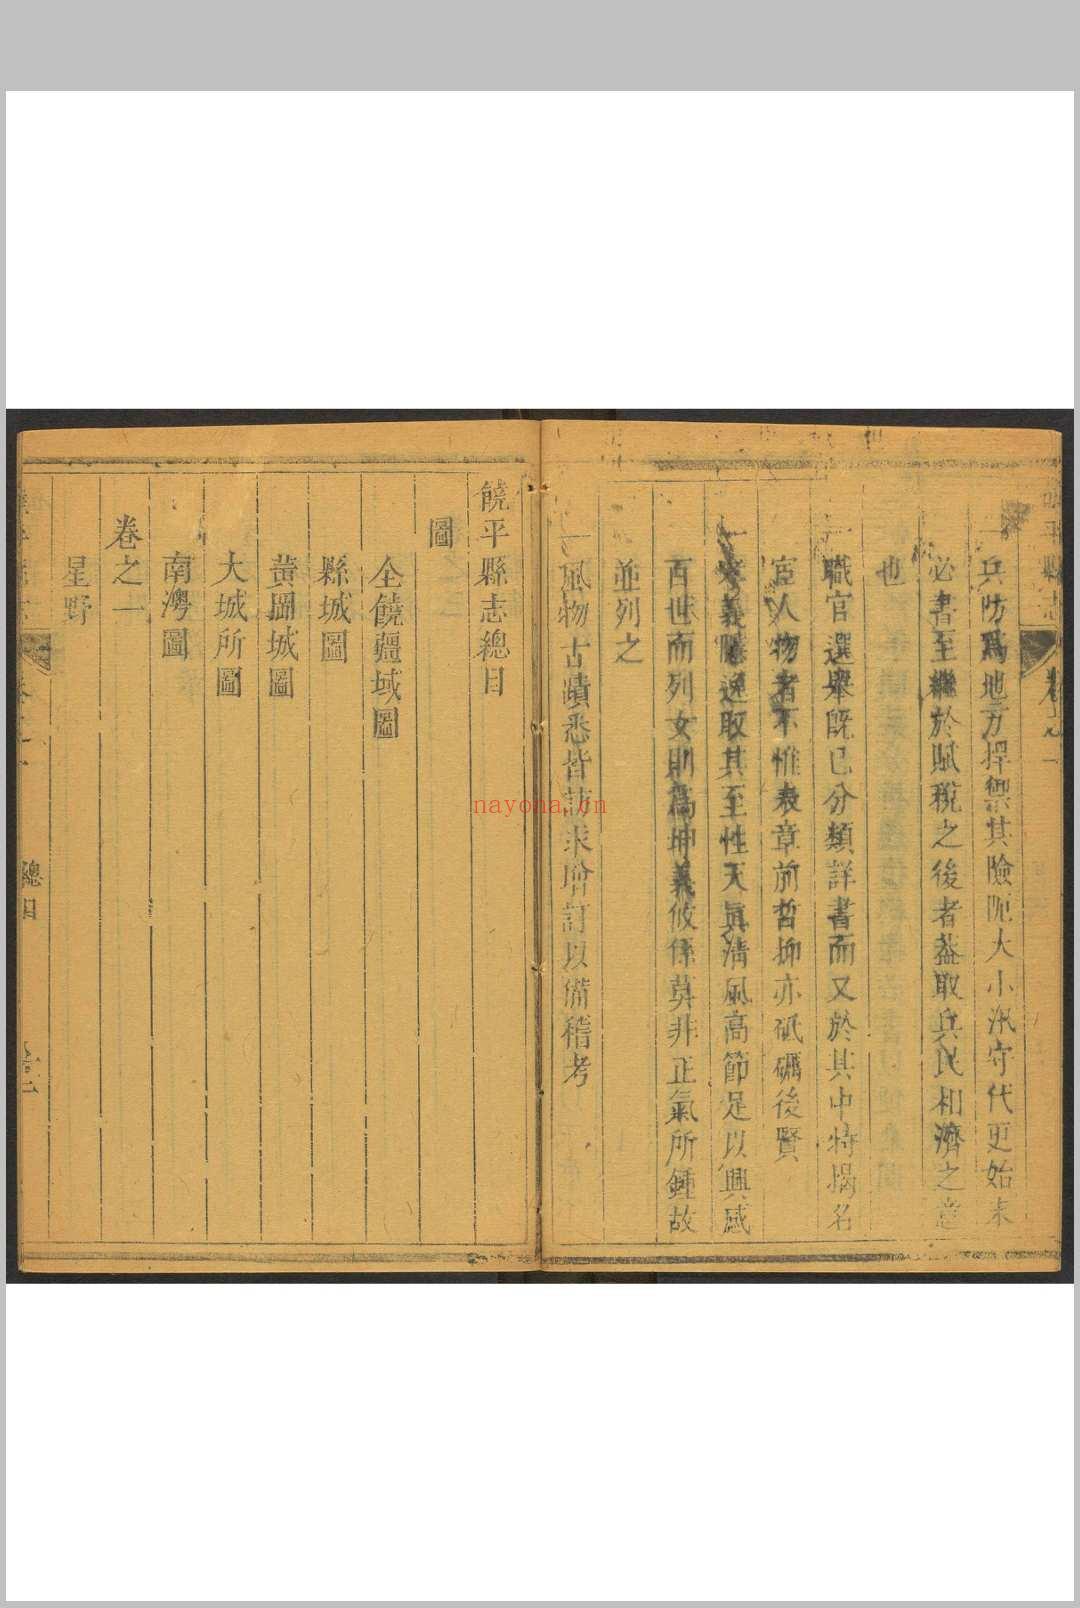 一兵防爲地方捍禦其險阨大小汛守代更始末
必書至繼於賦稅之後者葢取兵民相濟之意
也
一職官選舉旣已分類詳書而又於其中特揭名
宦人物者不惟表章前哲抑亦砥礪後賢
一孝義隱逸取其至性天眞淸風高節足以興感
百世而列女則爲坤義攸係莫非正氣所鍾故
並列之
一風物古蹟悉皆訪求增訂以備稽考
饒平縣志總目
圖
全饒疆域圖
縣城圖
黃岡城圖
大城所圖
南澳圖
卷之一
星野
總目
nayona.cn